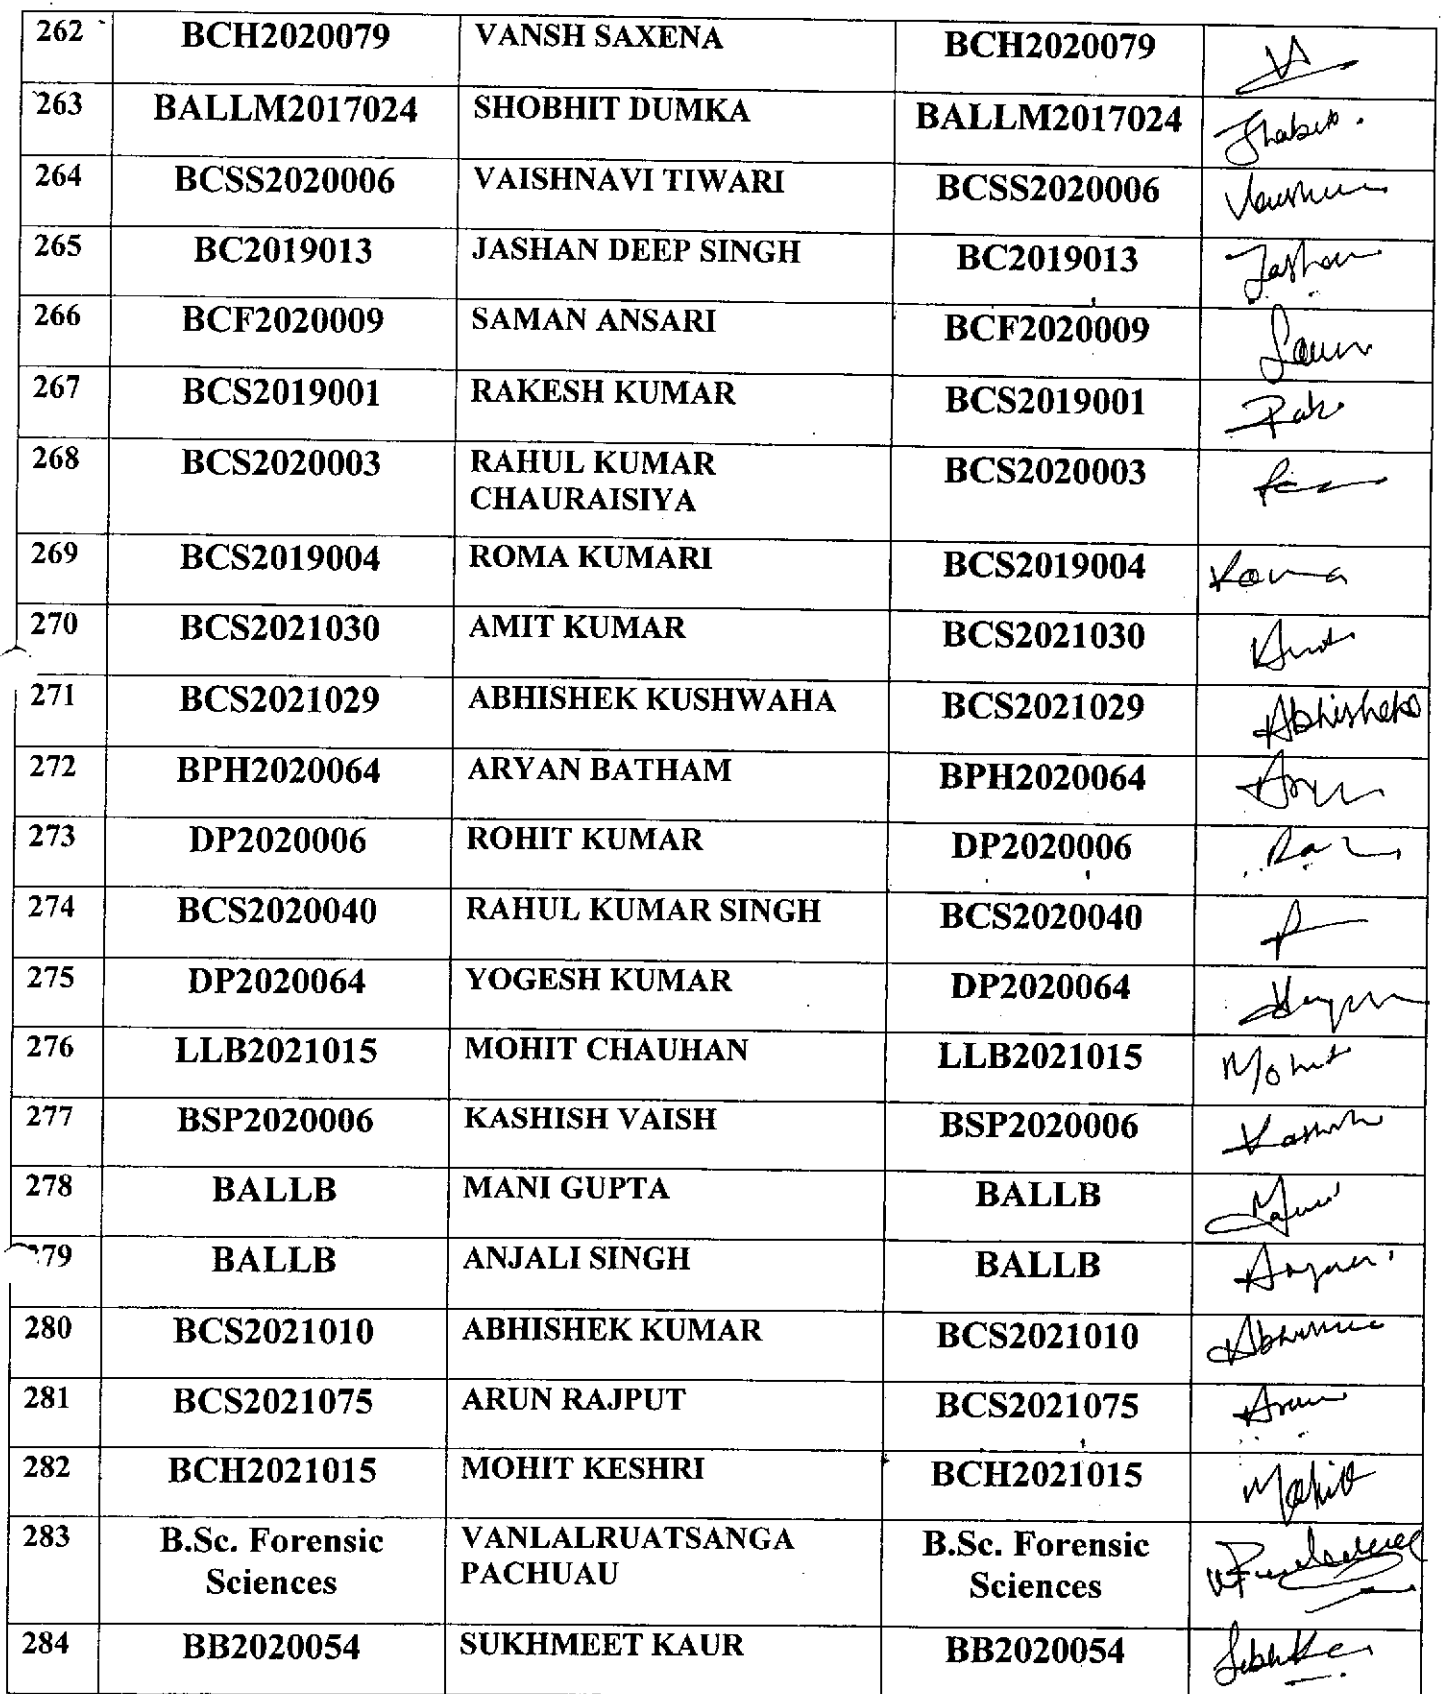 262 BCH2020079 VANSH SAXENA BCH2020079
263 BALLM2017024 SHOBHIT DUMKA BALLM2017024
264 BCSS2020006 VAISHNAVI TIWARI BCSS2020006
265 BC2019013 JASHAN DEEP SINGH BC2019013 Jashan
266 BCF2020009 SAMAN ANSARI BCF2020009
267 BCS2019001 RAKESH KUMAR BCS2019001
268 BCS2020003 RAHUL KUMAR BCS2020003
CHAURAISIYA
269 BCS2019004 ROMA KUMARI BCS2019004 Roma
270 BCS2021030 AMIT KUMAR BCS2021030
271 BCS2021029 ABHISHEK KUSHWAHA BCS2021029 Abhishek
272 BPH2020064 ARYAN BATHAM BPH2020064
273 DP2020006 ROHIT KUMAR DP2020006
274 BCS2020040 RAHUL KUMAR SINGH BCS2020040
275 DP2020064 YOGESH KUMAR DP2020064
276 LLB2021015 MOHIT CHAUHAN LLB2021015 Mohit
277 BSP2020006 KASHISH VAISH BSP2020006 Kashish
278 BALLB MANI GUPTA BALLB
279 BALLB ANJALI SINGH BALLB
280 BCS2021010 ABHISHEK KUMAR BCS2021010
281 BCS2021075 ARUN RAJPUT BCS2021075 Arun
282 BCH2021015 MOHIT KESHRI BCH2021015 Mohit
283 B.Sc. Forensic VANLALRUATSANGA B.Sc. Forensic
Sciences PACHUAU Sciences
284 BB2020054 SUKHMEET KAUR BB2020054